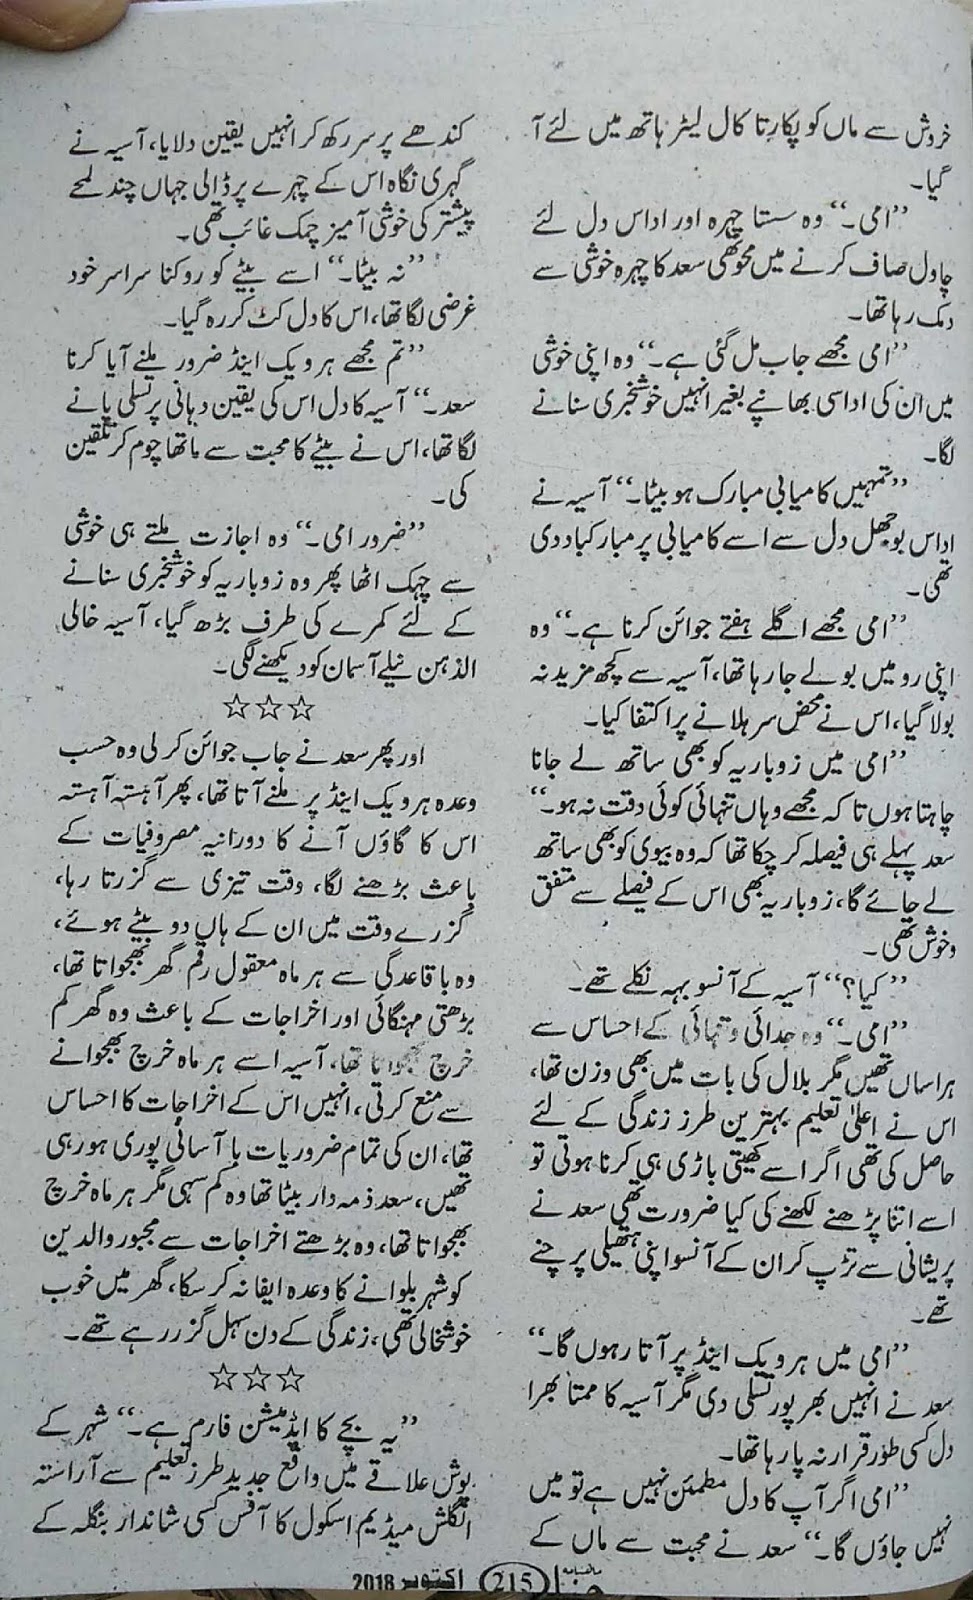 خروش سے ماں کو پکارتا کال لیٹر ہاتھ میں لئے آ
گیا۔
’’امی۔‘‘ وہ ستا چہرہ اور اداس دل لئے
چاول صاف کرنے میں محو تھی سعد کا چہرہ خوشی سے
دمک رہا تھا۔
’’امی مجھے جاب مل گئی ہے۔‘‘ وہ اپنی خوشی
میں ان کی اداسی بھانپے بغیر انہیں خوشخبری سنانے
لگا۔
’’تمہیں کامیابی مبارک ہو بیٹا۔‘‘ آسیہ نے
اداس بوجھل دل سے اسے کامیابی پر مبارکباد دی
تھی۔
’’امی مجھے اگلے ہفتے جوائن کرنا ہے۔‘‘ وہ
اپنی رو میں بولے جا رہا تھا، آسیہ سے کچھ مزید نہ
بولا گیا، اس نے محض سر ہلانے پر اکتفا کیا۔
’’امی میں زوباریہ کو بھی ساتھ لے جانا
چاہتا ہوں تاکہ مجھے وہاں تنہائی کوئی دقت نہ ہو۔‘‘
سعد پہلے ہی فیصلہ کر چکا تھا کہ وہ بیوی کو بھی ساتھ
لے جائے گا، زوباریہ بھی اس کے فیصلے سے متفق
و خوش تھی۔
’’کیا؟‘‘ آسیہ کے آنسو بہہ نکلے تھے۔
’’امی۔‘‘ وہ جدائی و تنہائی کے احساس سے
ہراساں تھیں مگر بلال کی بات میں بھی وزن تھا،
اس نے اعلیٰ تعلیم بہترین طرز زندگی کے لئے
حاصل کی تھی اگر اسے کھیتی باڑی ہی کرنا ہوتی تو
اسے اتنا پڑھنے لکھنے کی کیا ضرورت تھی سعد نے
پریشانی سے تڑپ کر ان کے آنسو اپنی ہتھیلی پر چنے
تھے۔
’’امی میں ہر ویک اینڈ پر آتا رہوں گا۔‘‘
سعد نے انہیں بھرپور تسلی دی مگر آسیہ کا ممتا بھرا
دل کسی طور قرار نہ پا رہا تھا۔
’’امی اگر آپ کا دل مطمئن نہیں ہے تو میں
نہیں جاؤں گا۔‘‘ سعد نے محبت سے ماں کے
کندھے پر سر رکھ کر انہیں یقین دلایا، آسیہ نے
گہری نگاہ اس کے چہرے پر ڈالی جہاں چند لمحے
پیشتر کی خوشی آمیز چمک غائب تھی۔
’’نہ بیٹا۔‘‘ اسے بیٹے کو روکنا سراسر خود
غرضی لگا تھا، اس کا دل کٹ کر رہ گیا۔
’’تم مجھے ہر ویک اینڈ ضرور ملنے آیا کرنا
سعد۔‘‘ آسیہ کا دل اس کی یقین دہانی پر تسلی پانے
لگا تھا، اس نے بیٹے کا محبت سے ماتھا چوم کر تلقین
کی۔
’’ضرور امی۔‘‘ وہ اجازت ملتے ہی خوشی
سے چہک اٹھا پھر وہ زوباریہ کو خوشخبری سنانے
کے لئے کمرے کی طرف بڑھ گیا، آسیہ خالی
الذہن نیلے آسمان کو دیکھنے لگی۔
☆☆☆
اور پھر سعد نے جاب جوائن کر لی وہ حسب
وعدہ ہر ویک اینڈ پر ملنے آتا تھا، پھر آہستہ آہستہ
اس کا گاؤں آنے کا دورانیہ مصروفیات کے
باعث بڑھنے لگا، وقت تیزی سے گزرتا رہا،
گزرے وقت میں ان کے ہاں دو بیٹے ہوئے،
وہ باقاعدگی سے ہر ماہ معقول رقم گھر بھجواتا تھا،
بڑھتی مہنگائی اور اخراجات کے باعث وہ گھر کم
خرچ بھجواتا تھا، آسیہ اسے ہر ماہ خرچ بھجوانے
سے منع کرتی، انہیں اس کے اخراجات کا احساس
تھا، ان کی تمام ضروریات با آسانی پوری ہو رہی
تھیں، سعد ذمہ دار بیٹا تھا وہ کم سہی مگر ہر ماہ خرچ
بھجواتا تھا، وہ بڑھتے اخراجات سے مجبور والدین
کو شہر بلوانے کا وعدہ ایفا نہ کر سکا، گھر میں خوب
خوشحالی تھی، زندگی کے دن سہل گزر رہے تھے۔
☆☆☆
’’یہ بچے کا ایڈمیشن فارم ہے۔‘‘ شہر کے
پوش علاقے میں واقع جدید طرز تعلیم سے آراستہ
انگلش میڈیم اسکول کا آفس کسی شاندار بنگلہ کے
ماہنامہ حنا 215 اکتوبر 2018